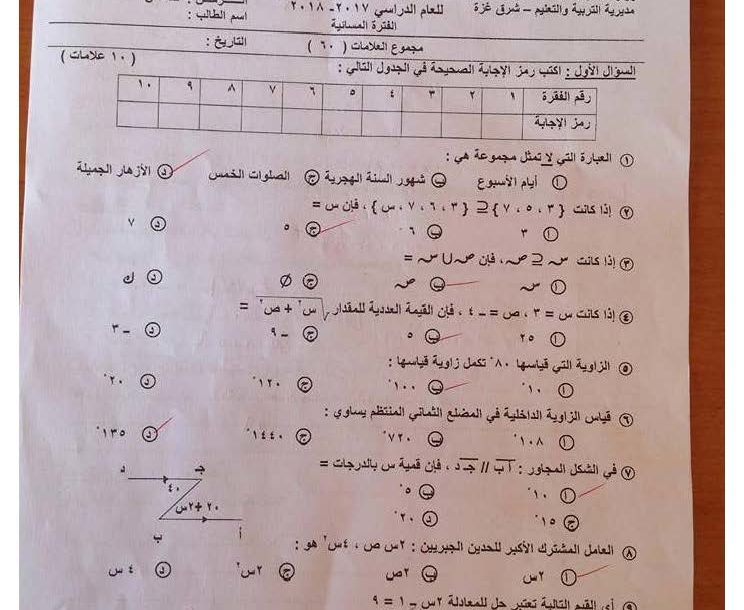 مديرية التربية والتعليم – شرق غزة
للعام الدراسي ٢٠١٧- ٢٠١٨
اسم الطالب :
الفترة المسائية
مجموع العلامات ( ٦٠ )
التاريخ :
السؤال الأول : اكتب رمز الإجابة الصحيحة في الجدول التالي :
( ١٠ علامات )
رقم الفقرة ١ ٢ ٣ ٤ ٥ ٦ ٧ ٨ ٩ ١٠
رمز الإجابة
١ العبارة التي لا تمثل مجموعة هي :
أ أيام الأسبوع ب شهور السنة الهجرية ج الصلوات الخمس د الأزهار الجميلة
٢ إذا كانت { ٣ ، ٥ ، ٧ } ⊆ { ٣ ، ٦ ، ٧ ، س } ، فإن س =
أ ٣ ب ٦ ج ٥ د ٧
٣ إذا كانت س ⊆ ص ، فإن ص U س =
أ س ب ص ج ∅ د ك
٤ إذا كانت س = ٣ ، ص = – ٤ ، فإن القيمة العددية للمقدار √ س٢ + ص٢ =
أ ٢٥ ب ٥ ج – ٩ د – ٣
٥ الزاوية التي قياسها ٨٠° تكمل زاوية قياسها :
أ ١٠° ب ١٠٠° ج ١٢٠° د ٢٠°
٦ قياس الزاوية الداخلية في المضلع الثماني المنتظم يساوي :
أ ١٠٨° ب ٧٢٠° ج ١٤٤٠° د ١٣٥°
٧ في الشكل المجاور : أ ب // جـ د ، فإن قمية س بالدرجات =
أ ١٠° ب ٥°
ج ١٥° د ٢٠°
د جـ
٤٠°
٢٠ + ٢س
ب أ
٨ العامل المشترك الأكبر للحدين الجبريين : ٢س ص ، ٤س٢ هو :
أ ٢س ب ٢ص ج ٢س٢ د ٤ س
٩ أي القيم التالية تعتبر حل للمعادلة ٢س – ١ = ٩